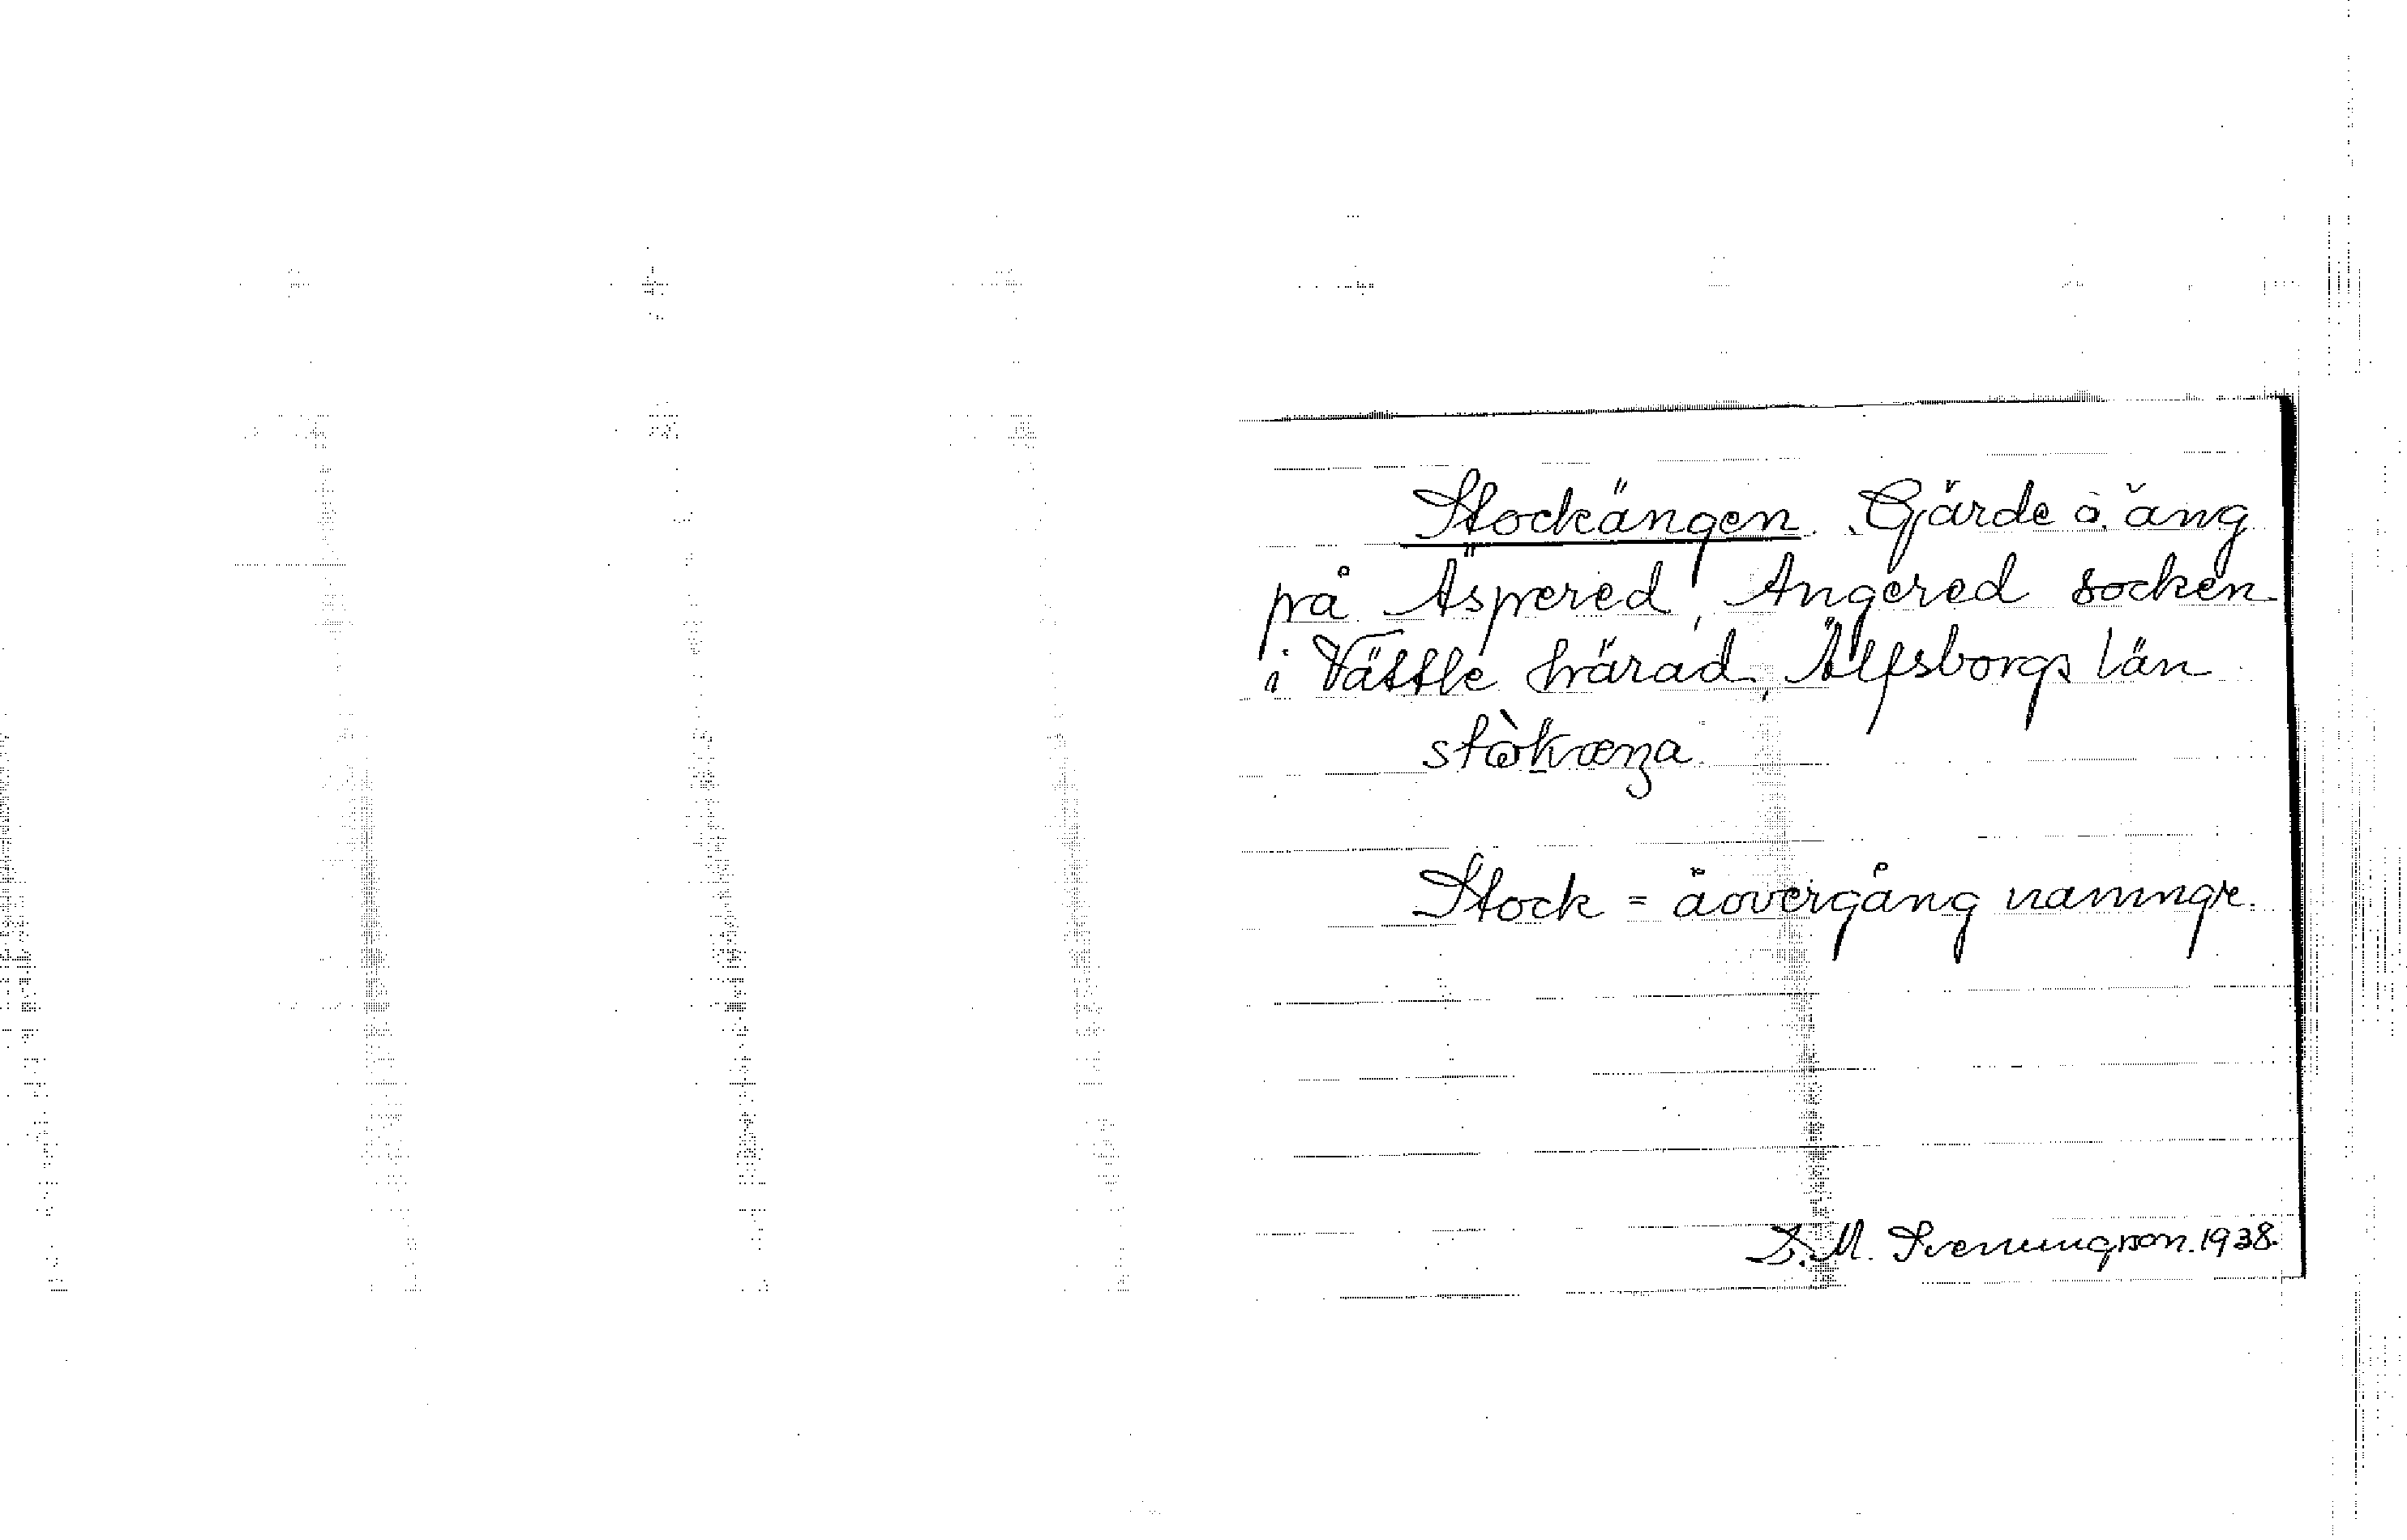 Stockängen. Gärde å äng
på Äspered, Angered socken
i Vättle härad, Älfsborgs län
stòkæŋa
Stock = åövergång
S. M. Svenungson. 1938.